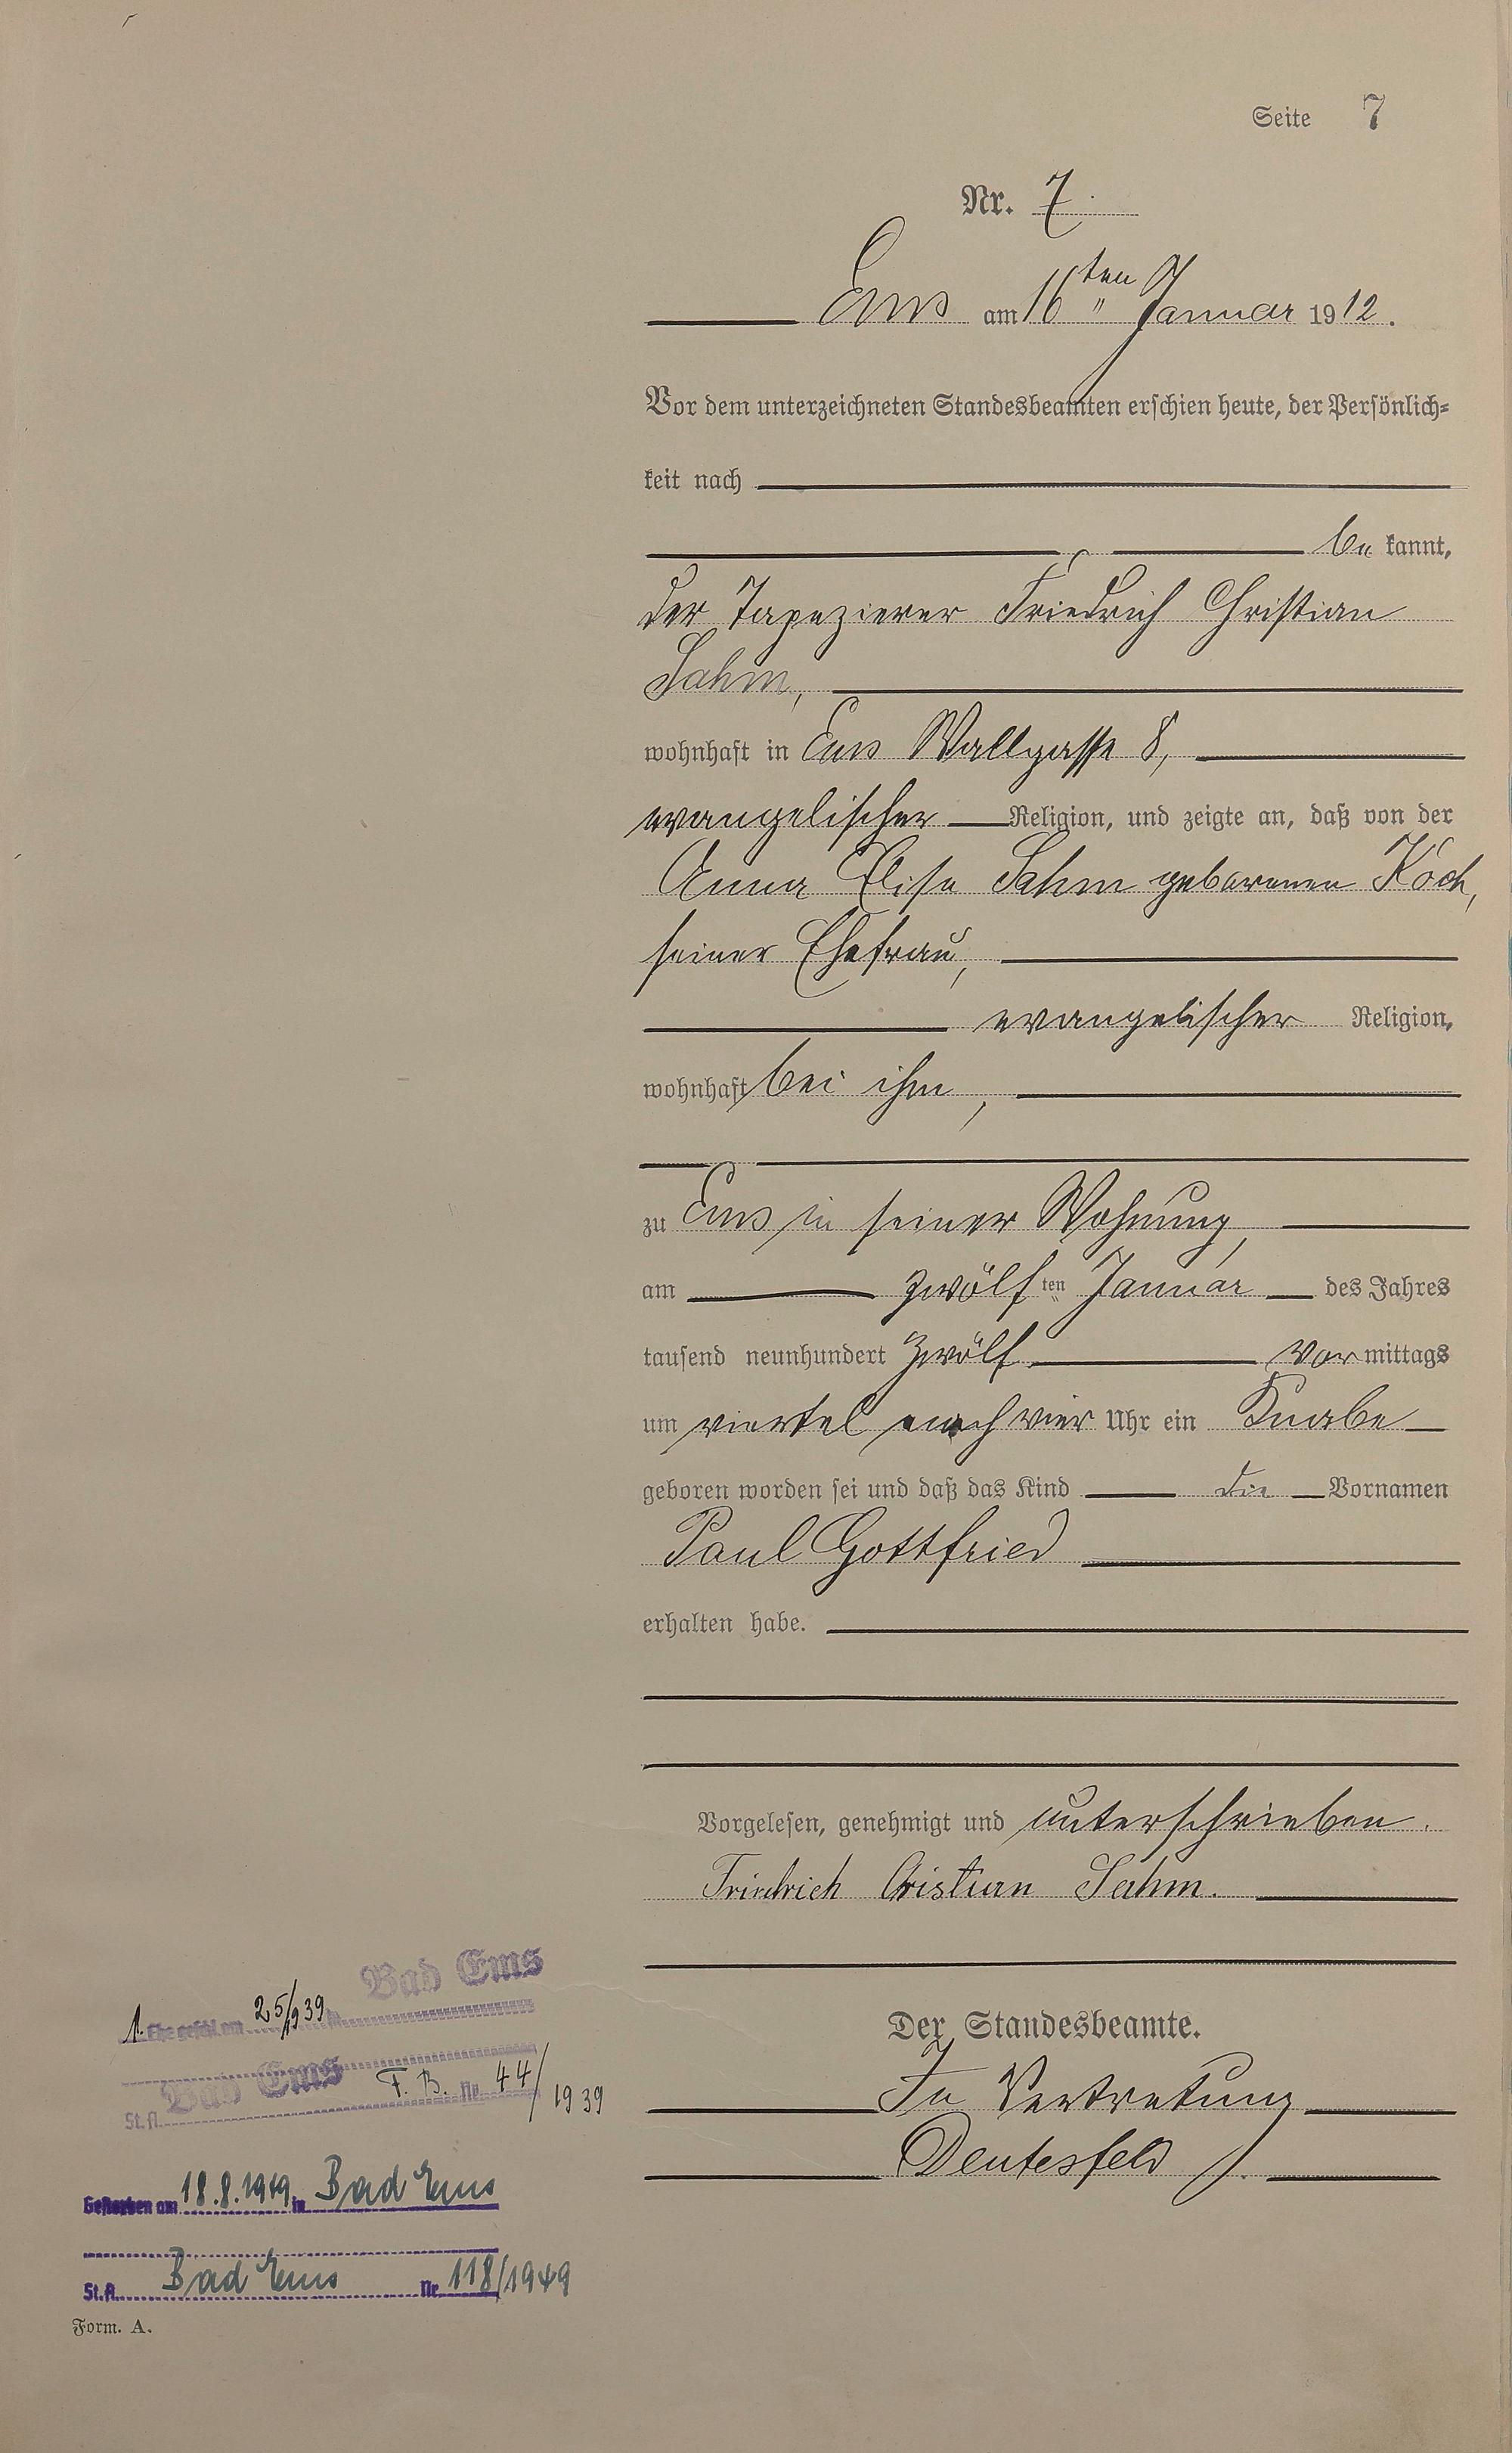 Seite 7
Nr. 7.
Ems am 16ten Januar 1912.
Vor dem unterzeichneten Standesbeamten erschien heute, der Persönlich-
keit nach
be kannt,
der Tapezierer Friedrich Christian
Sahm,
wohnhaft in Ems Wallgasse 8,
evangelischer Religion, und zeigte an, daß von der
Anna Elise Sahm geborenen Koch,
seiner Ehefrau,
evangelischer Religion,
wohnhaft bei ihm,
zu Ems in seiner Wohnung,
am zwölften Januar des Jahres
tausend neunhundert zwölf vormittags
um viertel nach vier Uhr ein Knabe
geboren worden sei und daß das Kind die Vornamen
Paul Gottfried
erhalten habe.
Vorgelesen, genehmigt und unterschrieben.
Friedrich Cristian Sahm.
Der Standesbeamte.
In Vertretung
Deutesfeld
Bad Ems
1. Ehe geschl. am 25/9 39 in
Bad Ems
St.A. F. B. Nr. 44/1939
Gestorben am 18.8.1949 in Bad Ems
St.A. Bad Ems Nr. 118/1949
Form. A.